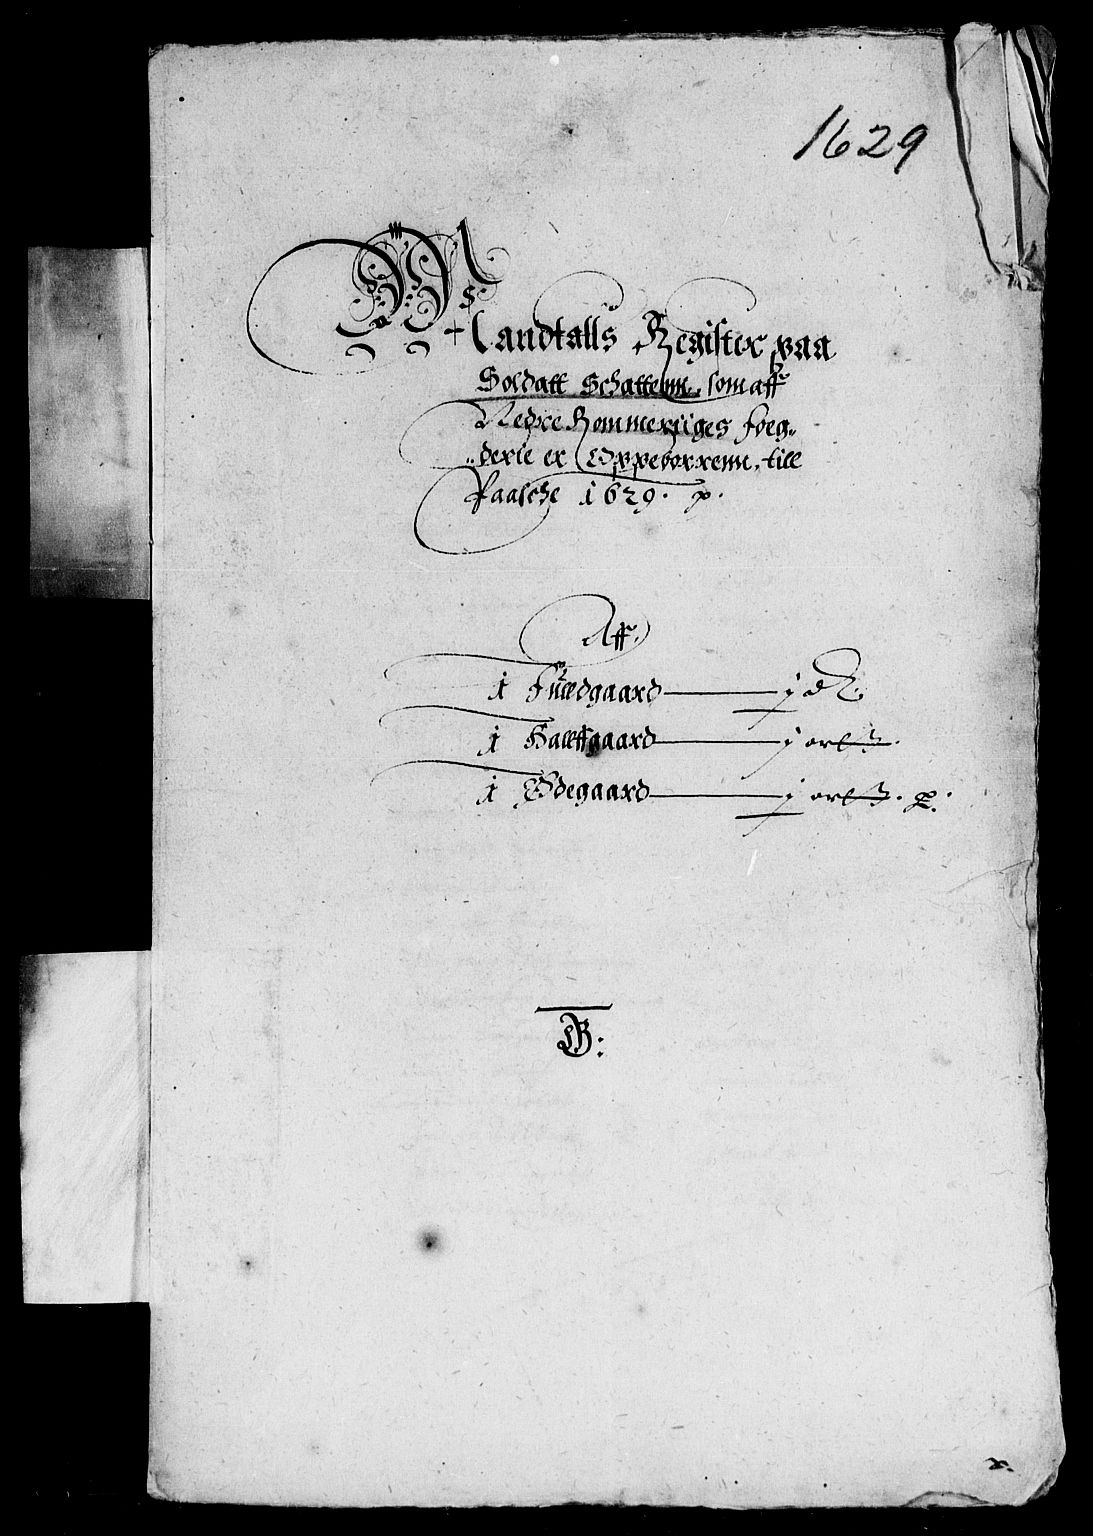 1629
Mandtalls Register paa
Soldatt Schattenn, som aff
Nedre Rommeriiges foeg„
„derie er Oppeborrenn, till
Paasche 1629. p.
Aff.
1 Fuldgaard — j dl.
1 Halffgaard — j ort
1 Ødegaard — j ort p.